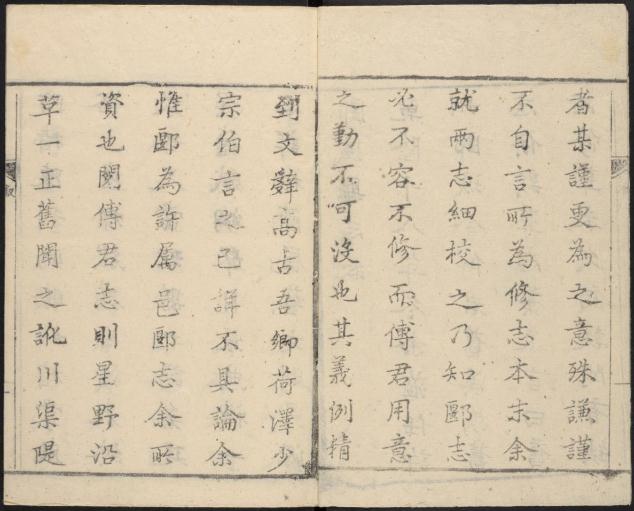 者某謹更為之意殊謙謹
不自言所為修志本末余
就兩志細校之乃知郾志
必不容不修而傅君用意
之勤不可沒也其義例精
到文辭高古吾鄉荷澤少
宗伯言之已詳不具論余
惟郾為許屬邑郾志余所
資也閱傅君志則星野沿
草一正舊聞之訛川渠隄